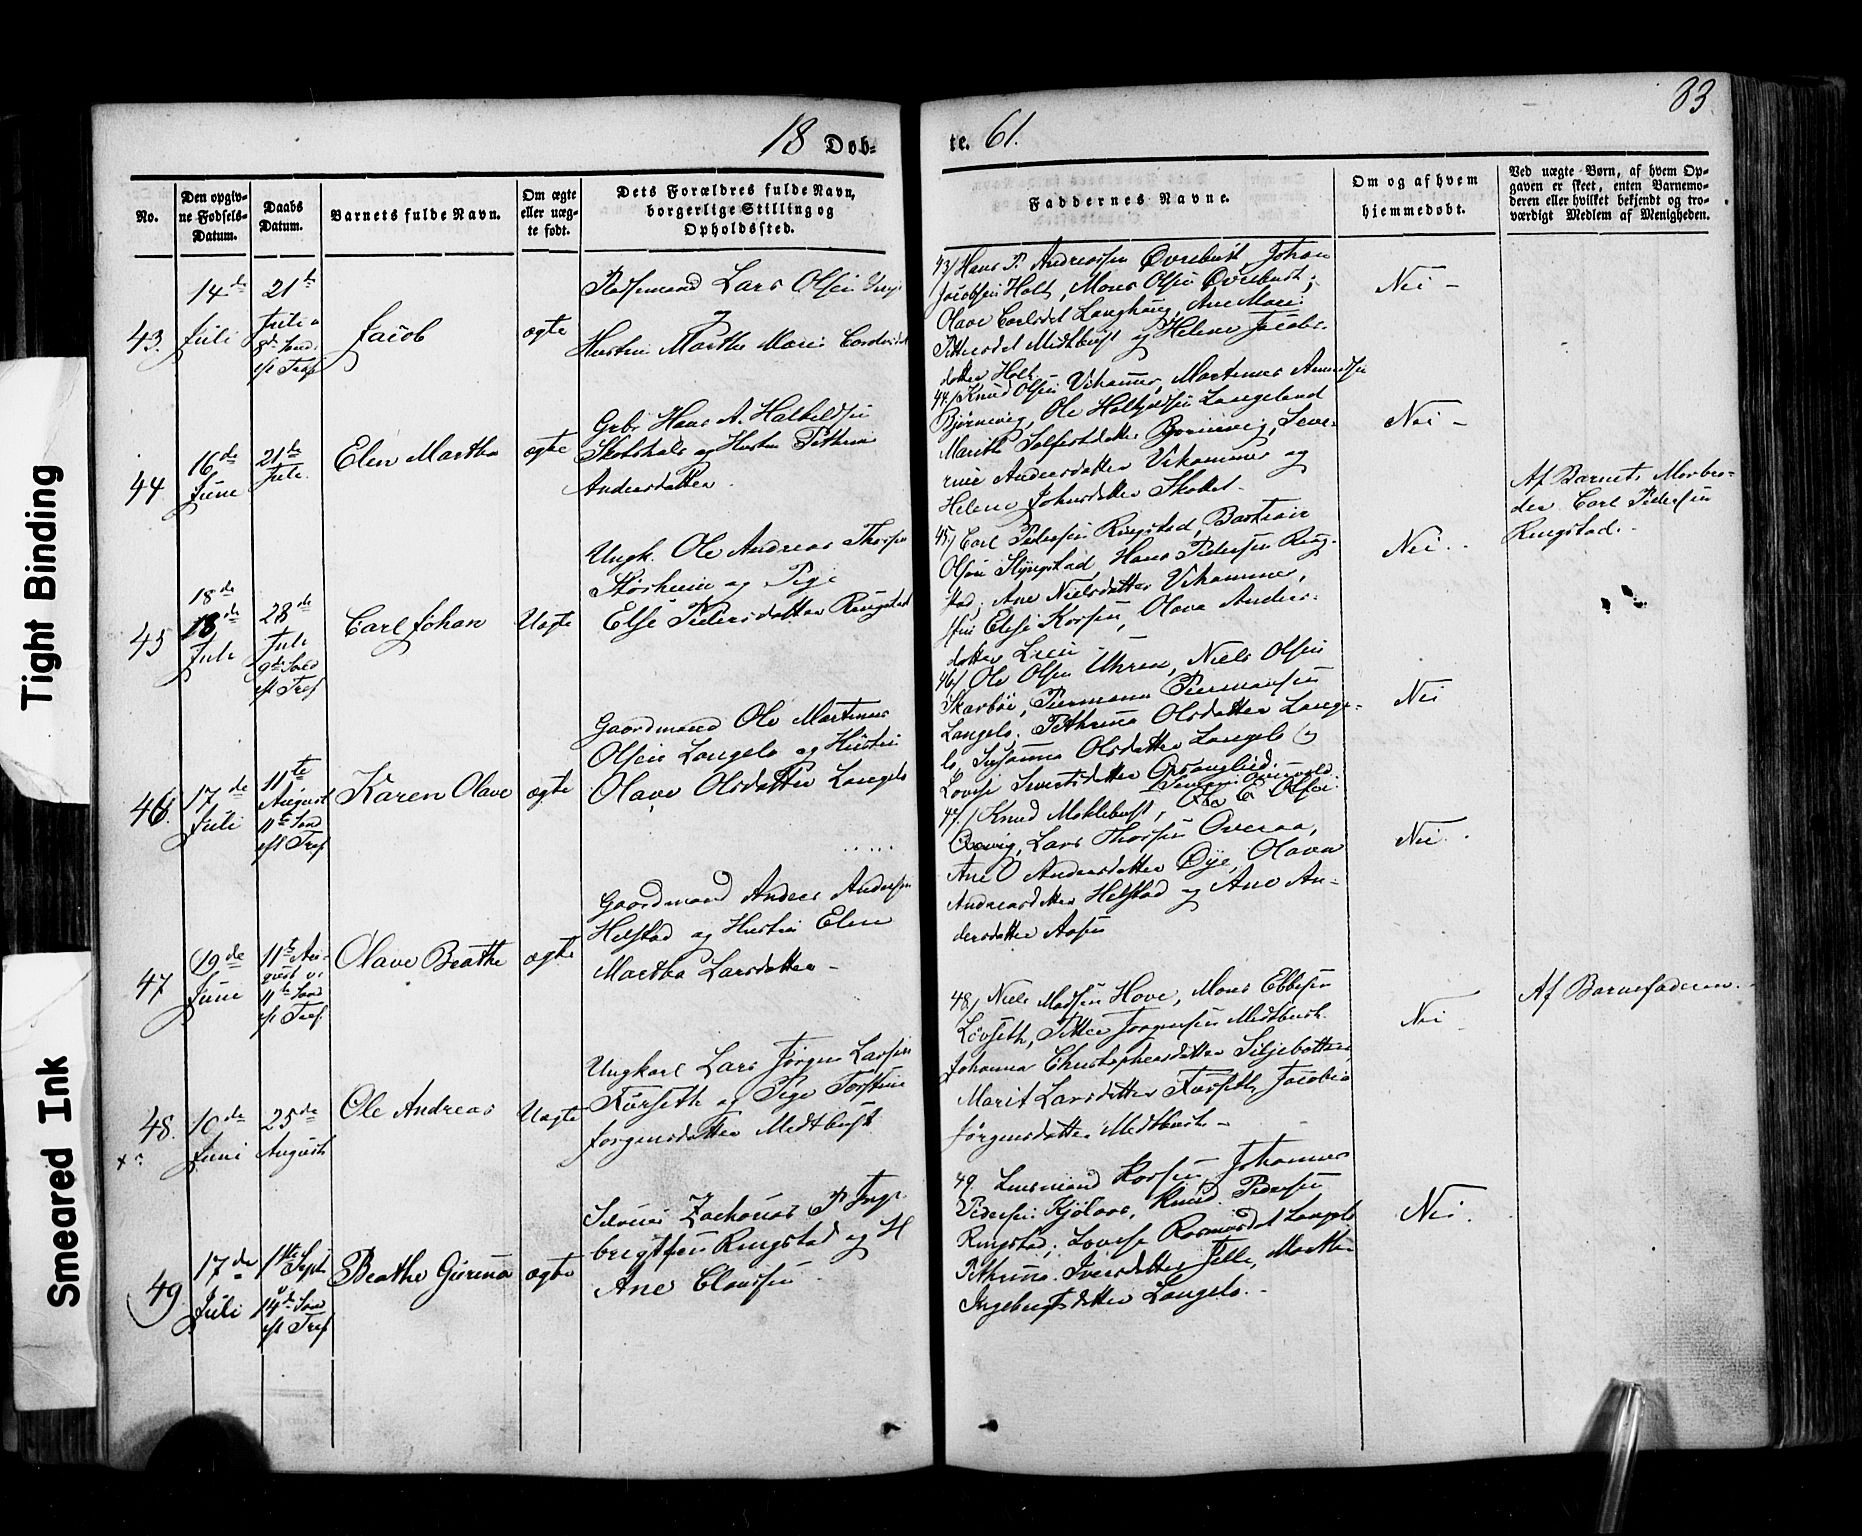 83.
18 Døb-
te. 61.
No.
Den opgiv-
ne Fødsels-
Datum.
Daabs
Datum.
Barnets fulde Navn.
Om ægte
eller uæg-
te født.
Dets Forældres fulde Navn,
borgerlige Stilling og
Opholdssted.
Faddernes Navne.
Om og af hvem
hjemmedøbt.
Ved uægte Børn, af hvem Op-
gaven er skeet, enten Barnemo-
deren eller hvilket bekjendt og tro-
værdigt Medlem af Menigheden.
43.
14de
Juli
21de
Juli
8de Sønd.
eft Tref
Jacob
ægte
Pladsmand Lars Olsen
Hustru Marthe Marie
43/ Hans P. Andreassen Øvrebust, Johan
Jacobsen Holt, Mons Olsen Øvrebust;
Olave Carlsdat Langhaug, Ane Marie
Pettersdat Medtbust og Helene Jacobs-
datter Holt.
Nei -
44
16de
June
21de
Juli.
Elen Martha
ægte
Grbr Hans A. Halkeldsen
og Hustru Pethrine
Andersdatter.
44/ Knud Olsen Vikammer, Martinus Amundsen
Bjørnevig, Ole Halkjeldsen Langeland
Marithe datter Bjørnevig, Seve-
rine Andersdatter Vikammer og
Helene Johnsdatter
Nei -
45
18de
18de
Juli
28de
Juli
9de Sønd
eft Tref
Carl Johan
Uægte
Ungk. Ole Andreas Thorsen
og Pige
Else Pedersdatter Ringstad
45/ Carl Pedersen Ringstad, Bastian
Olsen Ringstad, Hans Pedersen Ring-
stad; Ane Nielsdatter Vikammer,
Elise Korsen, Olava Anders-
datter Lien
Nei.
Af Barnets Morbro-
der Carl Pedersen
Ringstad.
46.
17de
Juli
11te
August
11te Sønd
eft Tref
Karen Olave
ægte
Gaardmand Ole Martinus
Olsen Langelo og Hustru
Olave Olsdatter Langelo
46/ Ole Olsen Uhren, Niels Olsen
Skarbøe, Peermann Peermansen
Langelo. Pethrina Olsdatter Lange-
lo, Susanna Olsdatter Langelo og
Lovise Sivertsdatter
Nei
47
19de
June
11te Au-
gust
11te Sønd
eft Tref
Olave Beathe
ægte
Gaardmand Anders Andersen
Helstad og Hustru Elen
Martha Larsdatter -
47/ Knud Moklebust, Ole E Olsen
Lars Thorsen Overaa,
Ane O Andersdatter Dye, Olava
Andreasdatter Helstad og Ane An-
dersdatter Aasen
Nei.
48.
10de
Juni
25de
August
Ole Andreas
Uægte
Ungkarl Lars Jørgen Larsen
Furseth og Pige Torstine
Jørgensdatter Medtbust
48/ Niels Madsen Hove, Mons Ebbesen
Løvseth, Petter Jørgensen Medtbust
Johanna Christophersdatter Siljebotten,
Marit Larsdatter Furseth, Jacobia
Jørgensdatter Medtbust -
Nei
Af Barnefaderen.
49
17de
Juli
1ste Sept
14de Sønd
eft Tref
Beathe Gurina
ægte
Zacharias P Inge-
brigtsen Ringstad og H
Ane Clausen
49. Lensmand Korsen, Johannes
Pedersen Kjølaas, Knud Pedersen
Ringstad; Lovise Rasmusdat Langelo
Pethrina Iversdatter Jelle, Marthe
Ingebrigtsdatter Langelo. -
Nei.
Tight Binding
Smeared Ink